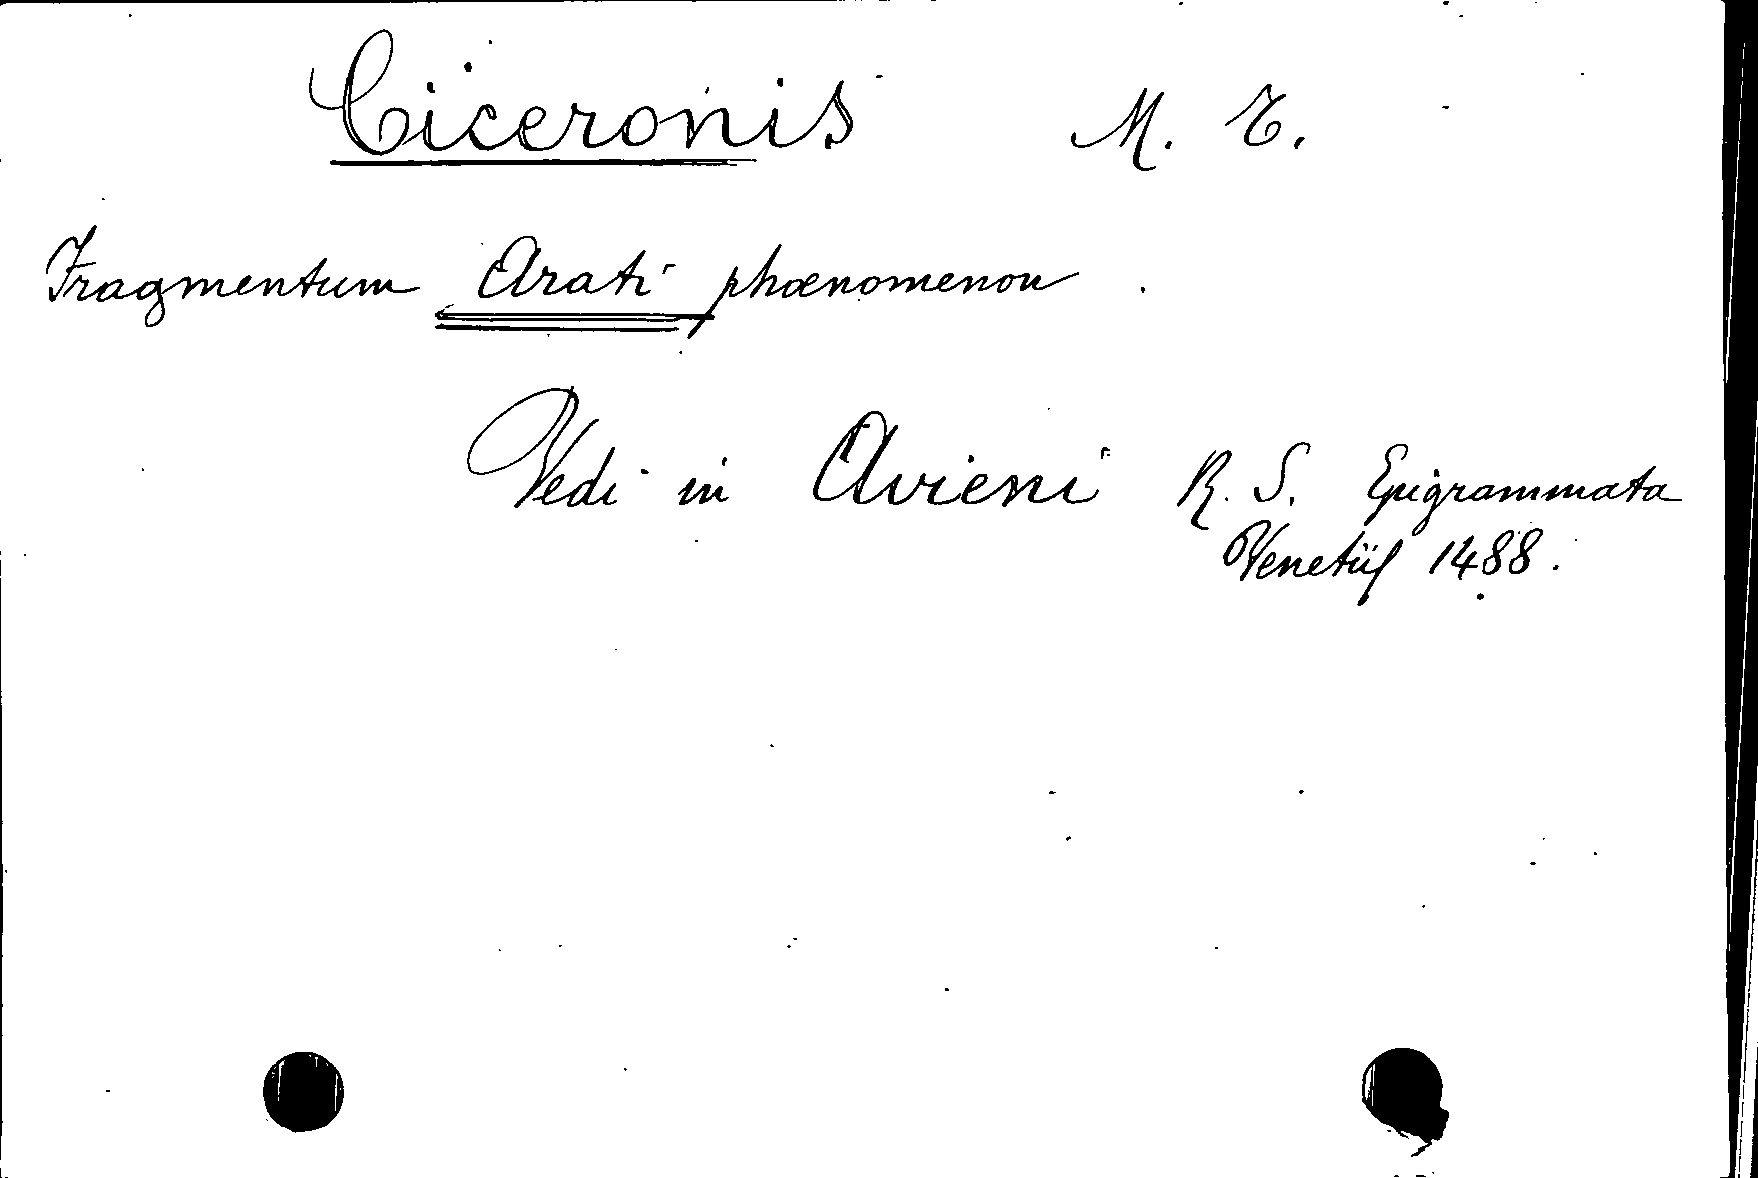 Ciceronis M. T.
Fragmentum Arati phœnomenon.
Vedi in Avieni R. S. Epigrammata
Venetiis 1488.